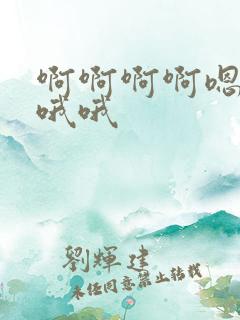 啊啊啊啊嗯
哦哦
劉輝建
未经同意禁止转载